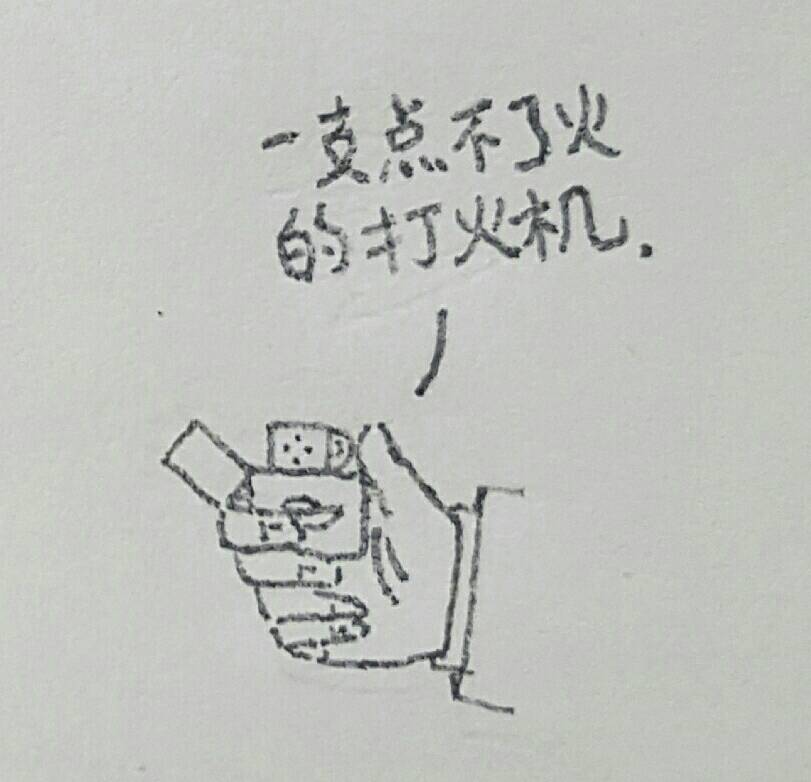 一支点不了火
的打火机.